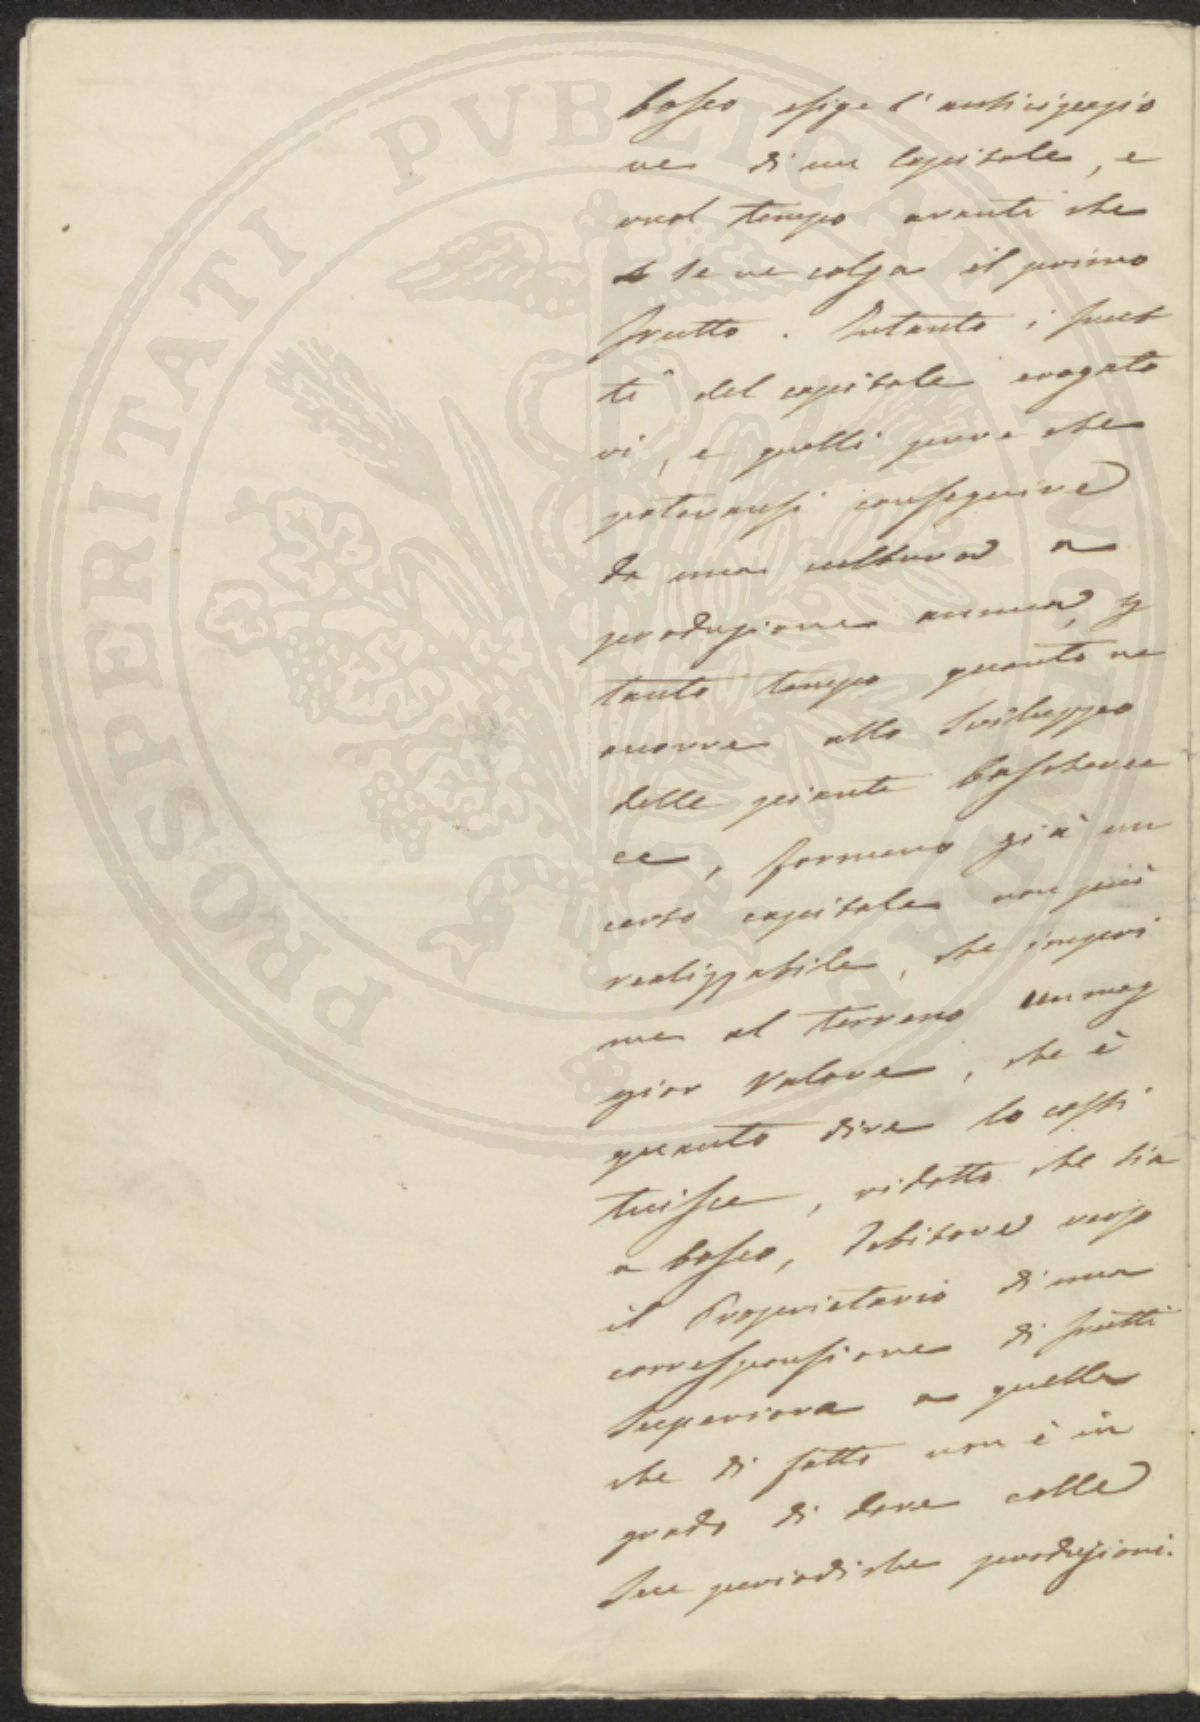 PROSPERITATI PVBLICAE AVGENDAE
bosco esige l'anticipazio
ne di un Capitale, e
vuol tempo avanti che
se ne colga il primo
frutto. Intanto i frut
ti del capitale erogato
vi, e quelli pure che
potevansi conseguire
da una cultura a
produzione annua, p
tanto tempo quanto ne
occorre allo Sviluppo
delle piante boschere
ce, formano già un
certo capitale non più
realizzabile, che impri
me al terreno un mag
gior Valore, che è
quanto dire lo costi
tuisce, ridotto che sia
a bosco, Debitore verso
il Proprietario di una
corresponsione di frutti
Superiore a quella
che di fatto non è in
grado di dare colle
Sue periodiche produzioni.